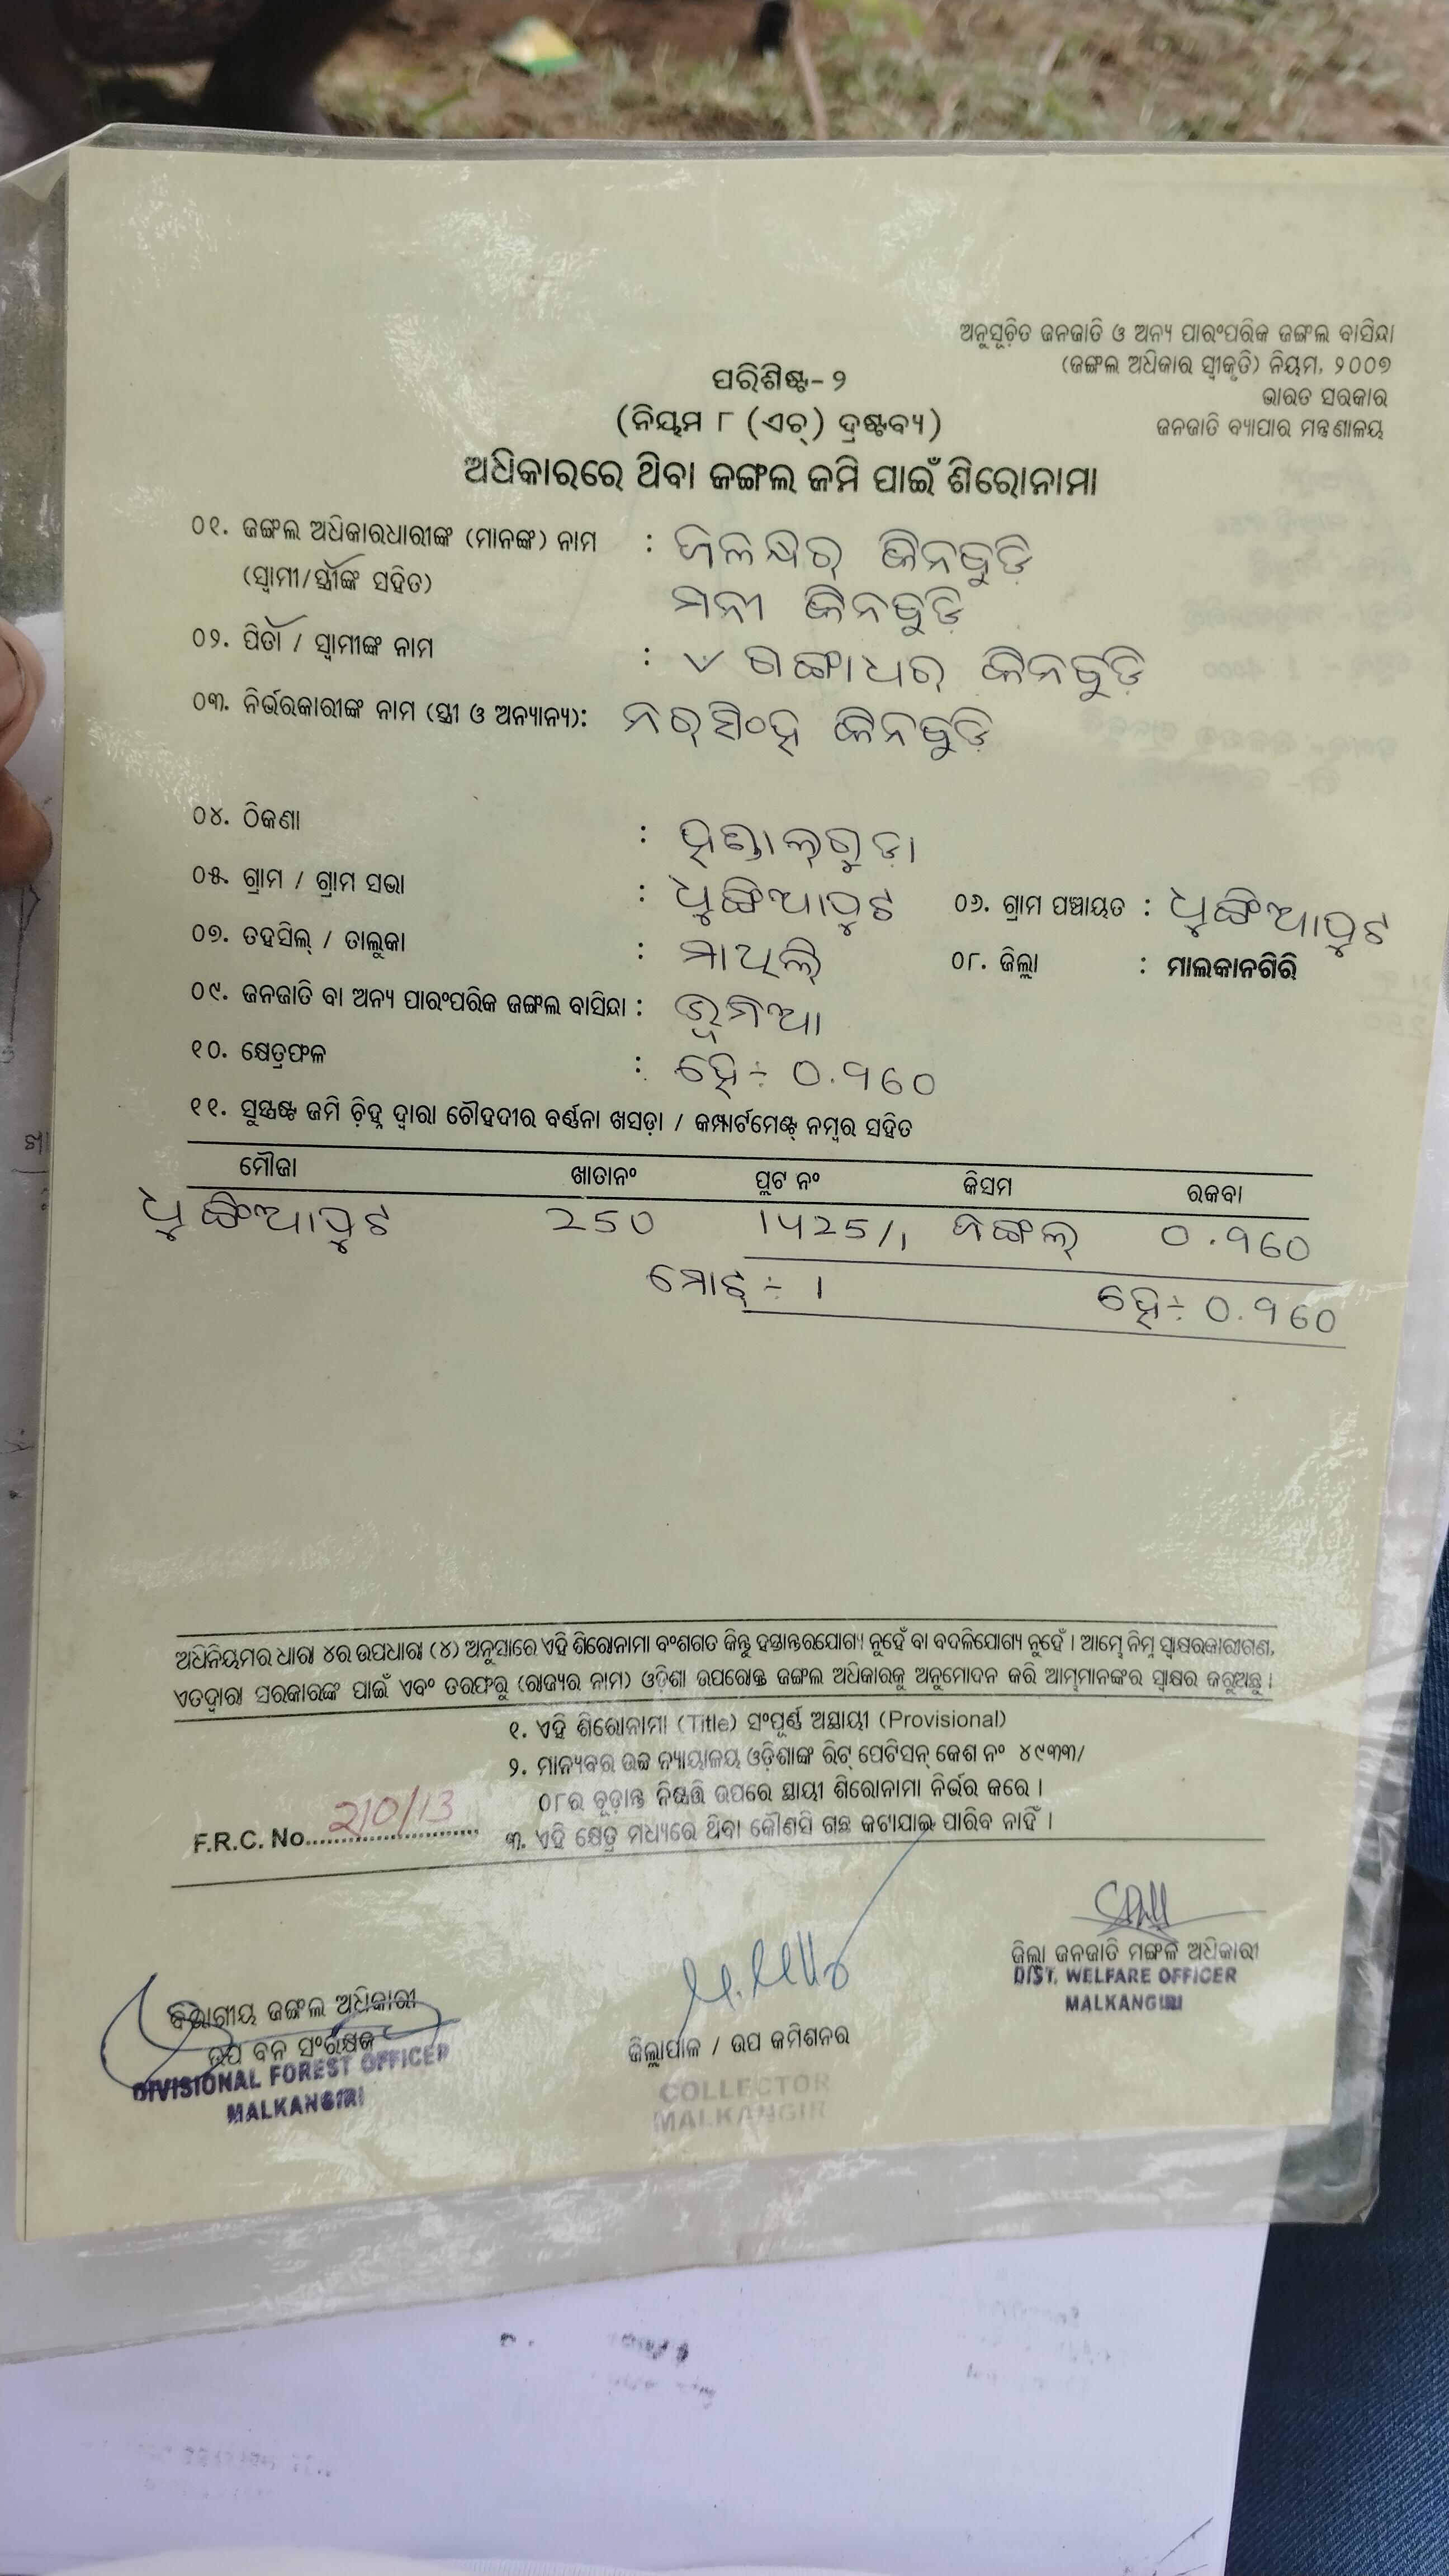 ଅନୁସୂଚିତ ଜନଜାତି ଓ ଅନ୍ୟ ପାରଂପରିକ ଜଙ୍ଗଲ ବାସିନ୍ଦା
(ଜଙ୍ଗଲ ଅଧିକାର ସ୍ୱୀକୃତି) ନିୟମ, ୨୦୦୭
ଭାରତ ସରକାର
ଜନଜାତି ବ୍ୟାପାର ମନ୍ତ୍ରଣାଳୟ
ପରିଶିଷ୍ଟ- ୨
(ନିୟମ ୮ (ଏଚ୍) ଦ୍ରଷ୍ଟବ୍ୟ)
ଅଧିକାରରେ ଥିବା ଜଙ୍ଗଲ ଜମି ପାଇଁ ଶିରୋନାମା
୦୧. ଜଙ୍ଗଲ ଅଧିକାରଧାରୀଙ୍କ (ମାନଙ୍କ) ନାମ : ଜଳନ୍ଧର୍ କିନବୁଡ଼ି
(ସ୍ୱାମୀ/ସ୍ତ୍ରୀଙ୍କ ସହିତ) ମନୀ କିନବୁଡ଼ି
୦୨. ପିତା / ସ୍ୱାମୀଙ୍କ ନାମ : ଗଙ୍ଗାଧର୍ କିନବୁଡ଼ି
୦୩. ନିର୍ଭରକାରୀଙ୍କ ନାମ (ସ୍ତ୍ରୀ ଓ ଅନ୍ୟାନ୍ୟ): ନର୍ସିଂହ କିନବୁଡ଼ି
୦୪. ଠିକଣା : ହଣ୍ତାଲ୍‌ଗୁଡ଼ା
୦୫. ଗ୍ରାମ / ଗ୍ରାମ ସଭା : ଧୁଙ୍ଗିଆପୁଟ ୦୬. ଗ୍ରାମ ପଞ୍ଚାୟତ : ଧୁଙ୍ଗିଆପୁଟ
୦୭. ତହସିଲ୍ / ତାଲୁକା : ମାଥିଲି ୦୮. ଜିଲ୍ଲା : ମାଲକାନଗିରି
୦୯. ଜନଜାତି ବା ଅନ୍ୟ ପାରଂପରିକ ଜଙ୍ଗଲ ବାସିନ୍ଦା : ଭୂମିଆ
୧୦. କ୍ଷେତ୍ରଫଳ : ହେ÷ 0.960
୧୧. ସୁସ୍ପଷ୍ଟ ଜମି ଚିହ୍ନ ଦ୍ୱାରା ଚୌହଦୀର ବର୍ଣ୍ଣନା ଖସଡ଼ା / କମ୍ପାର୍ଟମେଣ୍ଟ୍ ନମ୍ବର ସହିତ
ମୌଜା ଖାତାନଂ ପ୍ଲଟ ନଂ କିସମ ରକବା
ଧୁଙ୍ଗିଆପୁଟ 250 1425/1 ଜଙ୍ଗଲ୍ 0.960
ମୋଟ୍ ÷ 1 ହେ÷ 0.960
ଅଧିନିୟମର ଧାରା ୪ର ଉପଧାରା (୪) ଅନୁସାରେ ଏହି ଶିରୋନାମା ବଂଶଗତ କିନ୍ତୁ ହସ୍ତାନ୍ତରଯୋଗ୍ୟ ନୁହେଁ ବା ବଦଳିଯୋଗ୍ୟ ନୁହେଁ । ଆମ୍ଭେ ନିମ୍ନ ସ୍ୱାକ୍ଷରକାରୀଗଣ,
ଏତଦ୍ଵାରା ସରକାରଙ୍କ ପାଇଁ ଏବଂ ତରଫରୁ (ରାଜ୍ୟର ନାମ) ଓଡ଼ିଶା ଉପରୋକ୍ତ ଜଙ୍ଗଲ ଅଧିକାରକୁ ଅନୁମୋଦନ କରି ଆମ୍ଭମାନଙ୍କର ସ୍ୱାକ୍ଷର କରୁଅଛୁ ।
୧. ଏହି ଶିରୋନାମା (Title) ସଂପୂର୍ଣ୍ଣ ଅସ୍ଥାୟୀ (Provisional)
୨. ମାନ୍ୟବର ଉଚ୍ଚ ନ୍ୟାୟାଳୟ ଓଡ଼ିଶାଙ୍କ ରିଟ୍ ପେଟିସନ୍ କେଶ ନଂ ୪୯୩୩/
୦୮ର ଚୂଡ଼ାନ୍ତ ନିଷ୍ପତ୍ତି ଉପରେ ସ୍ଥାୟୀ ଶିରୋନାମା ନିର୍ଭର କରେ ।
F.R.C. No. 210/13
୩. ଏହି କ୍ଷେତ୍ର ମଧ୍ୟରେ ଥିବା କୌଣସି ଗଛ କଟାଯାଇ ପାରିବ ନାହିଁ ।
ଜିଲ୍ଲା ଜନଜାତି ମଙ୍ଗଳ ଅଧିକାରୀ
DIST. WELFARE OFFICER
MALKANGIRI
ବିଭାଗୀୟ ଜଙ୍ଗଲ ଅଧିକାରୀ
ଉପ ବନ ସଂରକ୍ଷକ
DIVISIONAL FOREST OFFICER
MALKANGIRI
ଜିଲ୍ଲାପାଳ / ଉପ କମିଶନର
COLLECTOR
MALKANGIRI